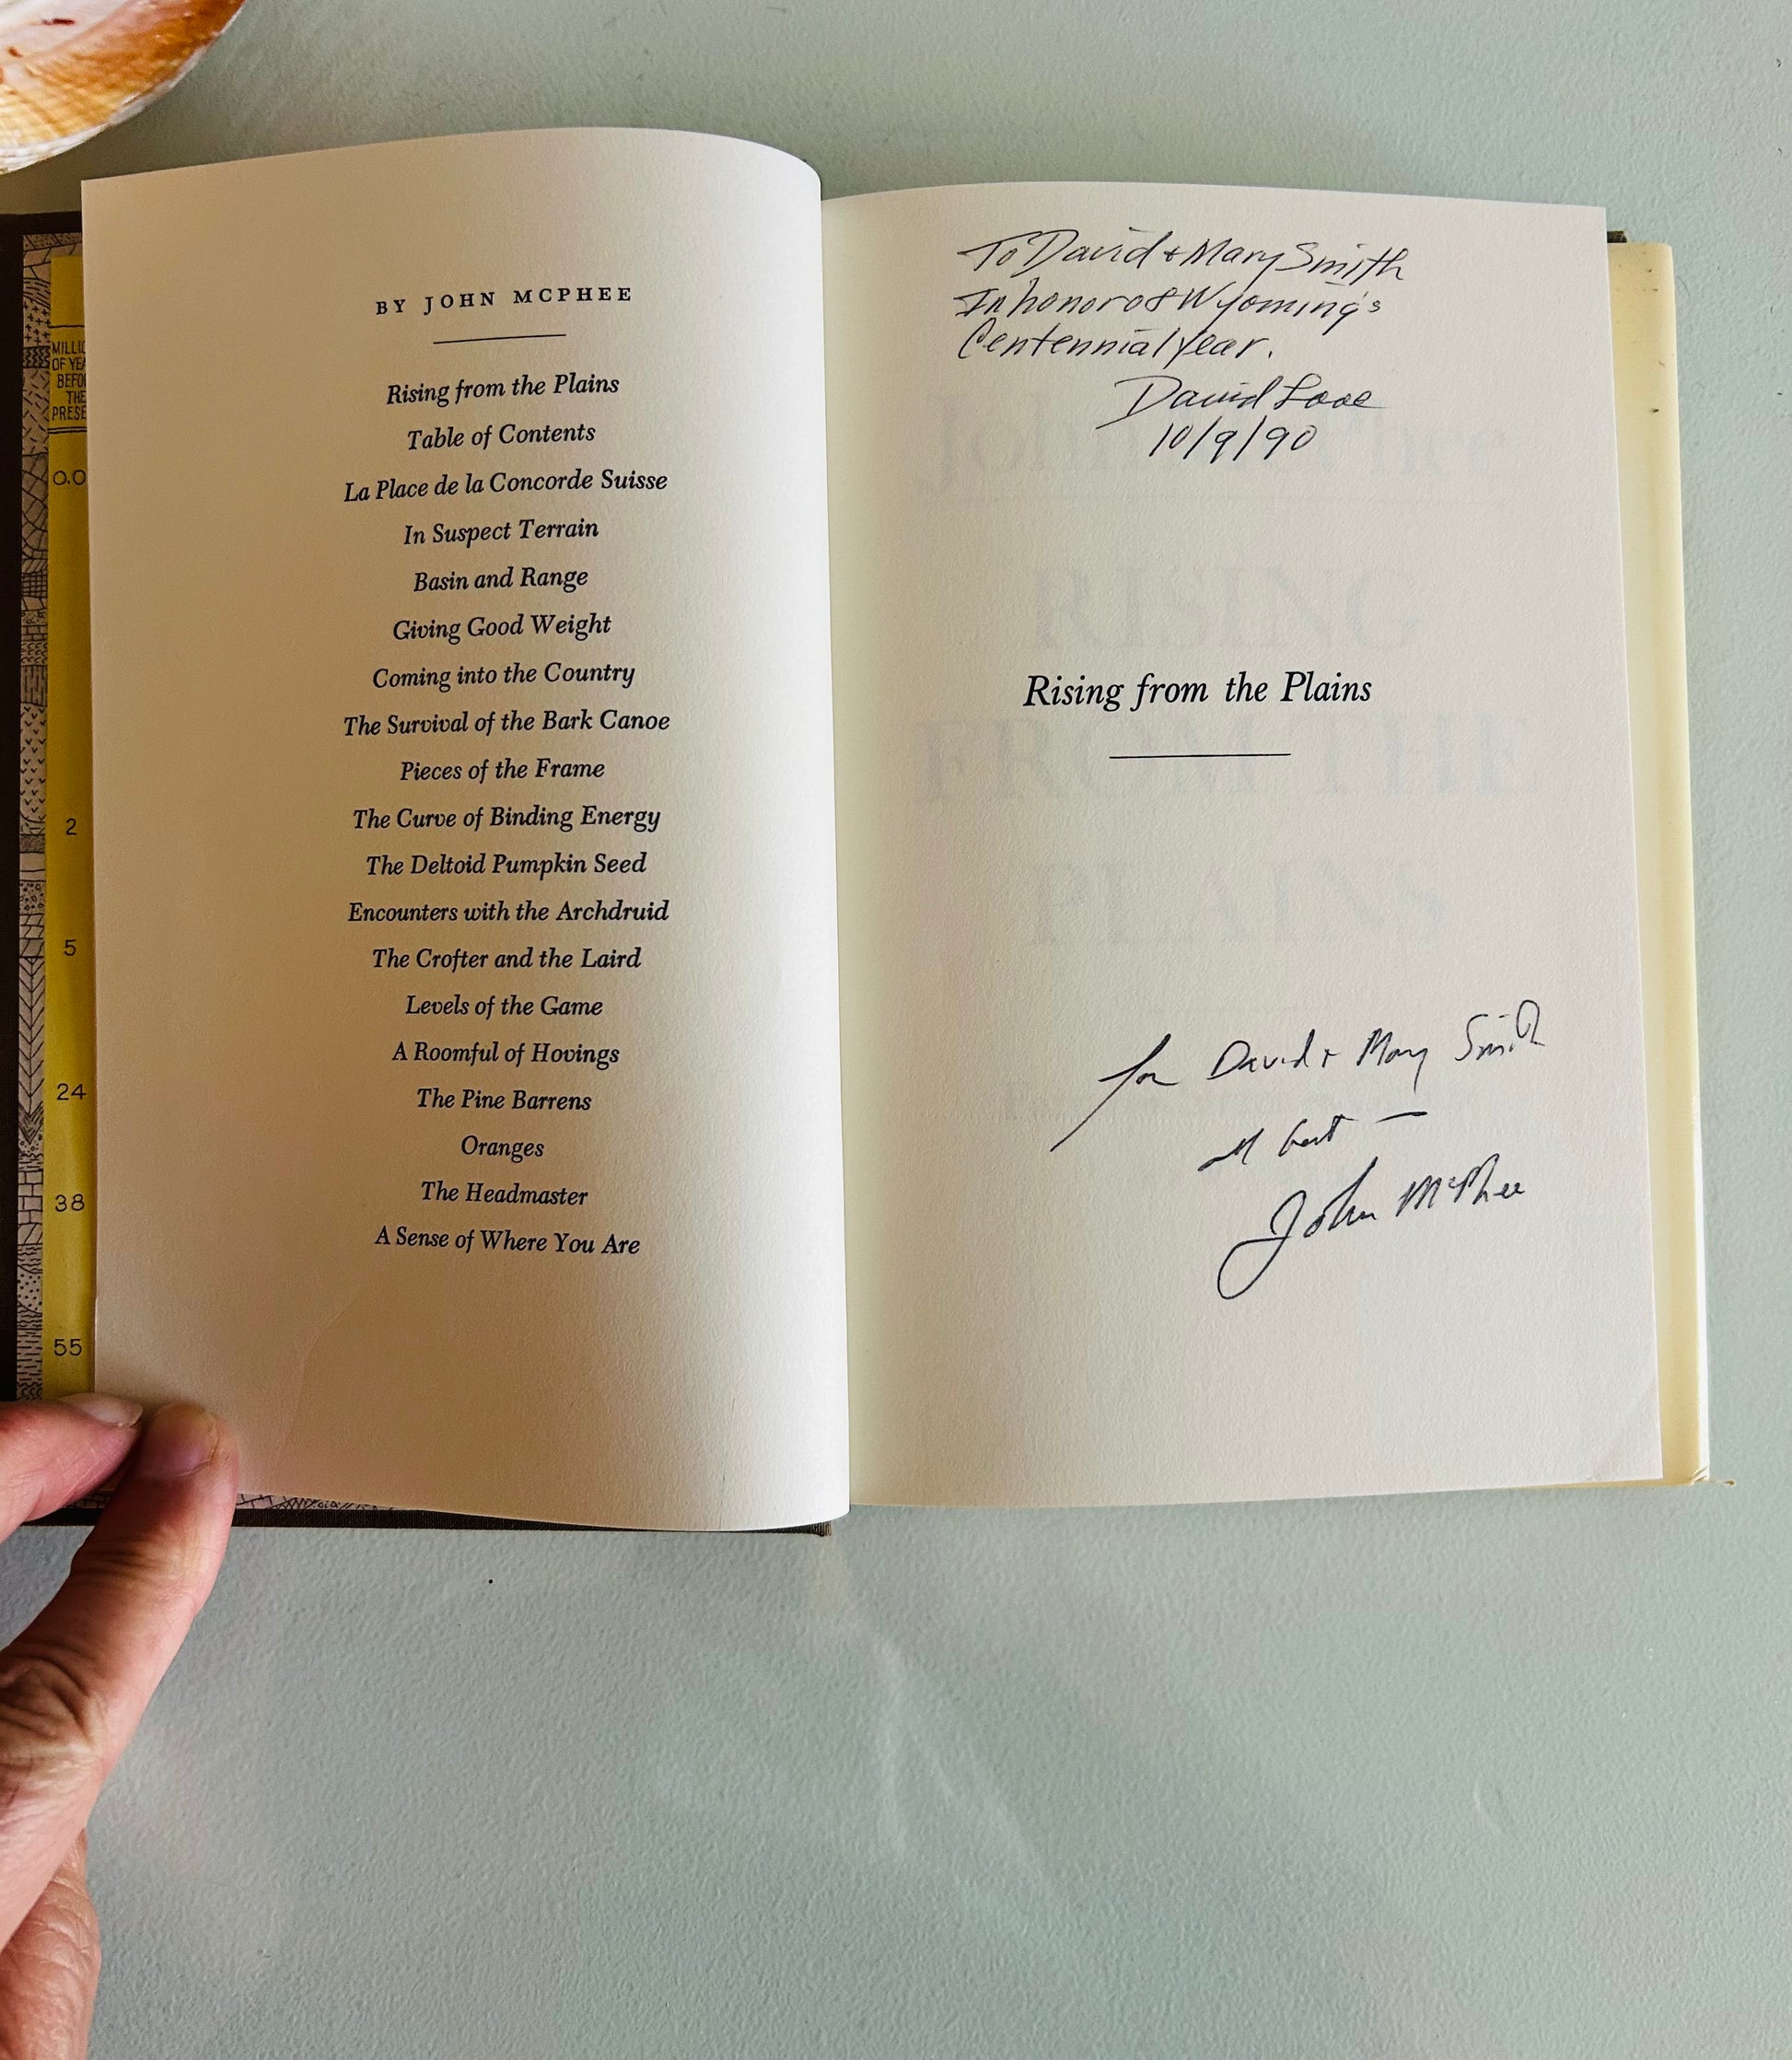 MILLIO
OF YEA
BEFO
THE
PRESE
0.0
2
5
24
38
55
BY JOHN MCPHEE
Rising from the Plains
Table of Contents
La Place de la Concorde Suisse
In Suspect Terrain
Basin and Range
Giving Good Weight
Coming into the Country
The Survival of the Bark Canoe
Pieces of the Frame
The Curve of Binding Energy
The Deltoid Pumpkin Seed
Encounters with the Archdruid
The Crofter and the Laird
Levels of the Game
A Roomful of Hovings
The Pine Barrens
Oranges
The Headmaster
A Sense of Where You Are
To David + Mary Smith
In honor of Wyoming's
Centennial Year.
David Love
10/9/90
Rising from the Plains
for David + Mary Smith
all best —
John McPhee